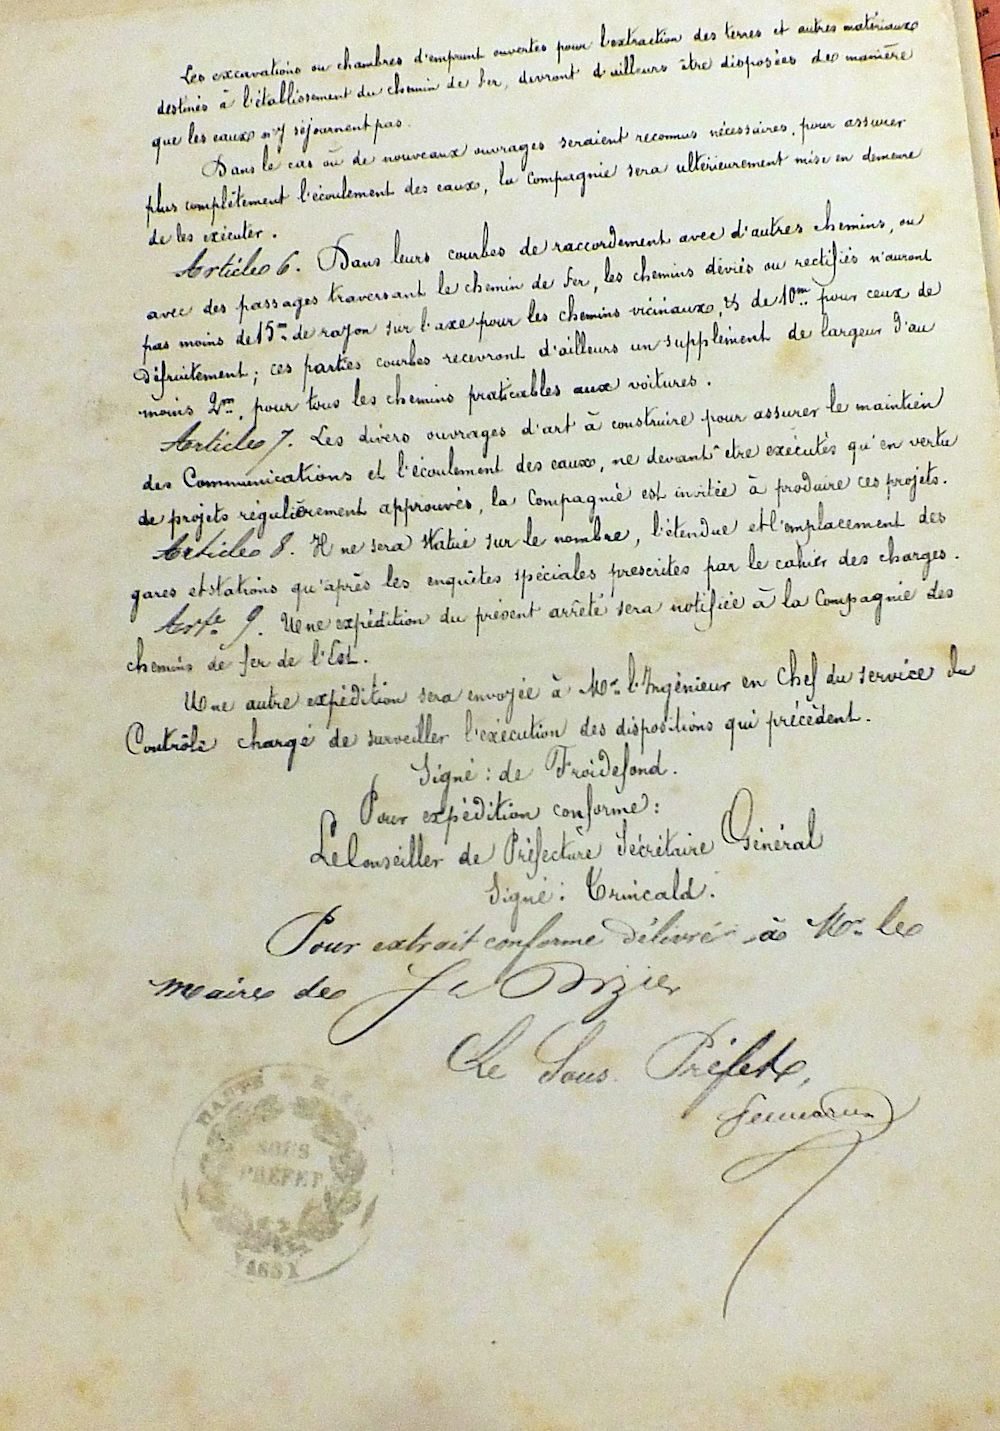 Les excavations ou chambres d'emprunt ouvertes pour l'extraction des terres et autres matériaux
destinés à l'établissement du chemin de fer, devront d'ailleurs être disposées de manière
que les eaux n'y séjournent pas.
Dans le cas où de nouveaux ouvrages seraient reconnus nécessaires, pour assurer
plus complètement l'écoulement des eaux, la Compagnie sera ultérieurement mise en demeure
de les exécuter.
Article 6. Dans leurs courbes de raccordement avec d'autres chemins, ou
avec des passages traversant le chemin de fer, les chemins déviés ou rectifiés n'auront
pas moins de 15m de rayon sur l'axe pour les chemins vicinaux, & de 10m pour ceux de
défruitement; ces parties courbes recevront d'ailleurs un supplément de largeur d'au
moins 2m, pour tous les chemins praticables aux voitures.
Article 7. Les divers ouvrages d'art à construire pour assurer le maintien
des Communications et l'écoulement des eaux, ne devant être exécutés qu'en vertu
de projets régulièrement approuvés, la Compagnie est invitée à produire ces projets.
Article 8. Il ne sera statué sur le nombre, l'étendue et l'emplacement des
gares et stations qu'après les enquêtes spéciales prescrites par le cahier des charges.
Arte 9. Une expédition du présent arrêté sera notifiée à la Compagnie des
chemins de fer de l'Est.
Une autre expédition sera envoyée à Mr l'Ingénieur en Chef du service du
Contrôle chargé de surveiller l'exécution des dispositions qui précèdent.
Signé: de Froidefond.
Pour expédition conforme:
Le Conseiller de Préfecture Secrétaire Général
Signé:
Pour extrait conforme délivré à Mr le
maire de St Dizier
Le Sous Préfet,
HAUTE
SOUS
PREFET
VASSY